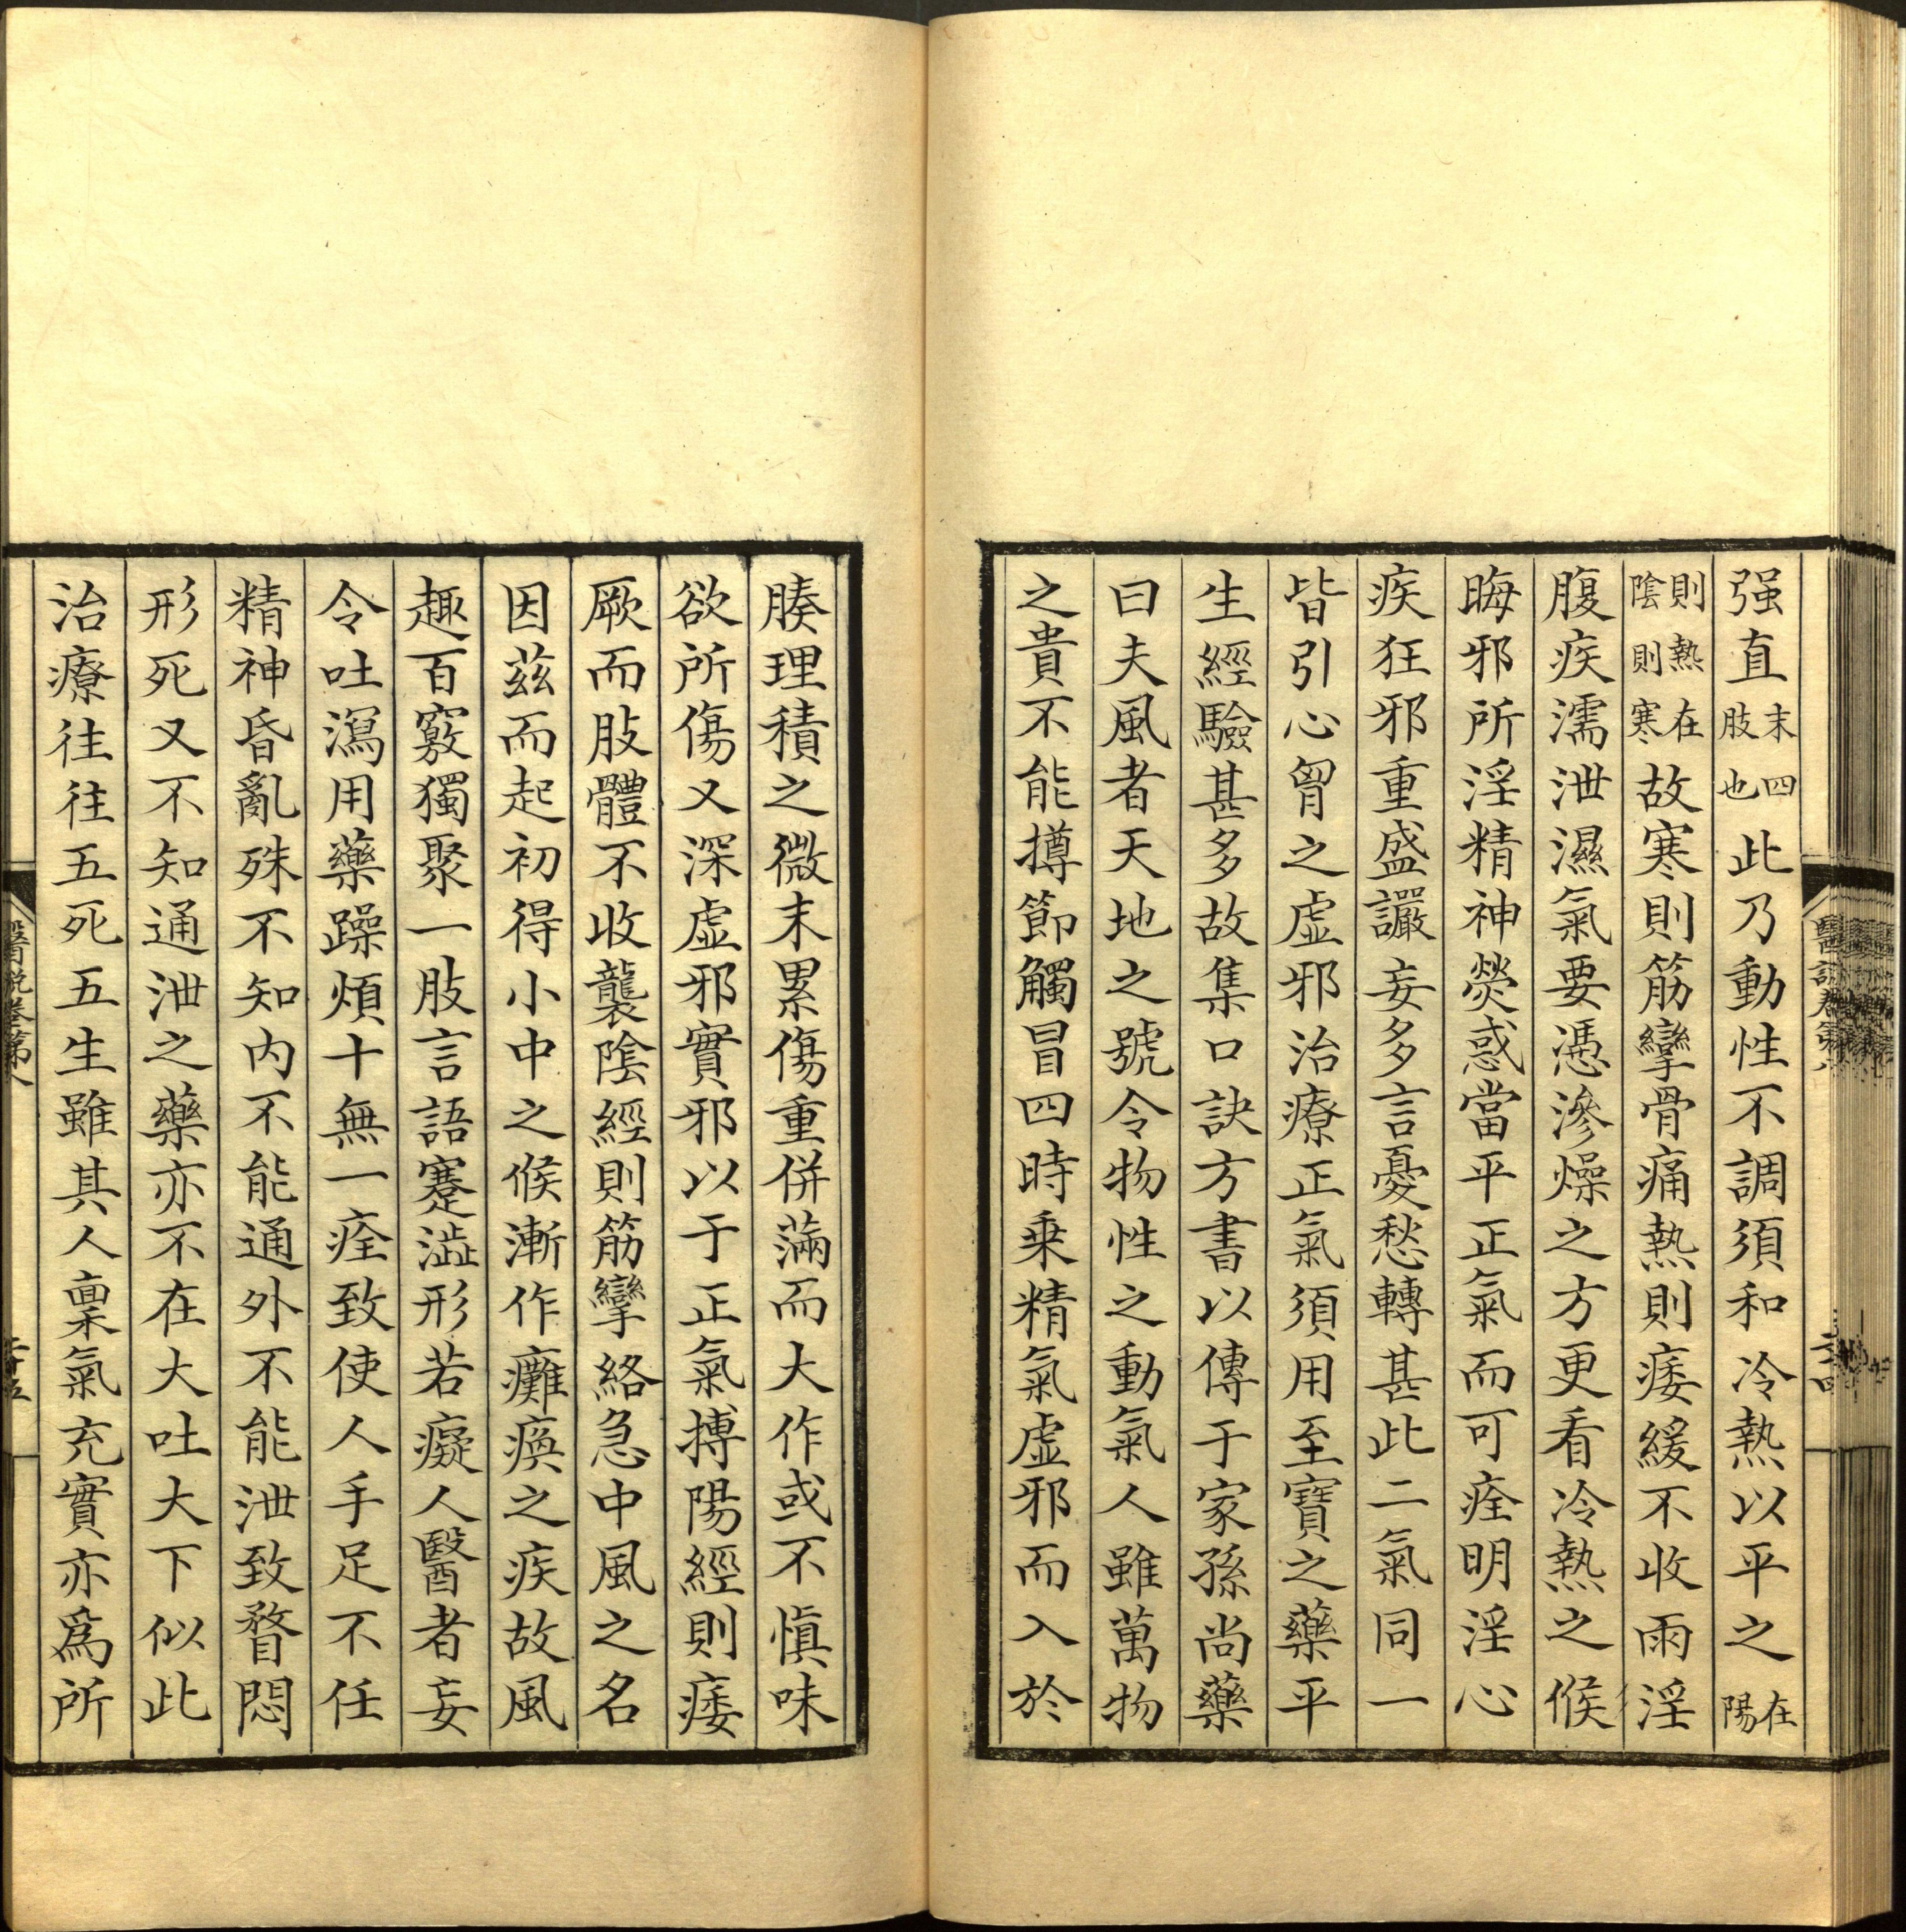 强直末四肢也此乃動性不調須和冷熱以平之在陽
則熱在陰則寒故寒則筋攣骨痛熱則痿緩不收雨淫
腹疾濡泄濕氣要憑滲燥之方更看冷熱之候
晦邪所淫精神熒惑當平正氣而可痊明淫心
疾狂邪重盛讝妄多言憂愁轉甚此二氣同一
皆引心胷之虛邪治療正氣須用至寶之藥平
生經驗甚多故集口訣方書以傳于家孫尚藥
曰夫風者天地之號令物性之動氣人雖萬物
之貴不能撙節觸冒四時乗精氣虛邪而入於
醫說卷第八
二十四
腠理積之微末累傷重併滿而大作或不慎味
欲所傷又深虛邪實邪以于正氣搏陽經則痿
厥而肢體不收襲陰經則筋攣絡急中風之名
因茲而起初得小中之候漸作癱瘓之疾故風
趣百竅獨聚一肢言語蹇澁形若癡人醫者妄
令吐瀉用藥躁煩十無一痊致使人手足不任
精神昏亂殊不知内不能通外不能泄致瞀悶
形死又不知通泄之藥亦不在大吐大下似此
治療往往五死五生雖其人禀氣充實亦爲所
醫說卷第八
二十五